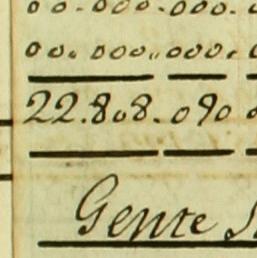 00.000.000.
00.000,,000.
22.808.090
Gente